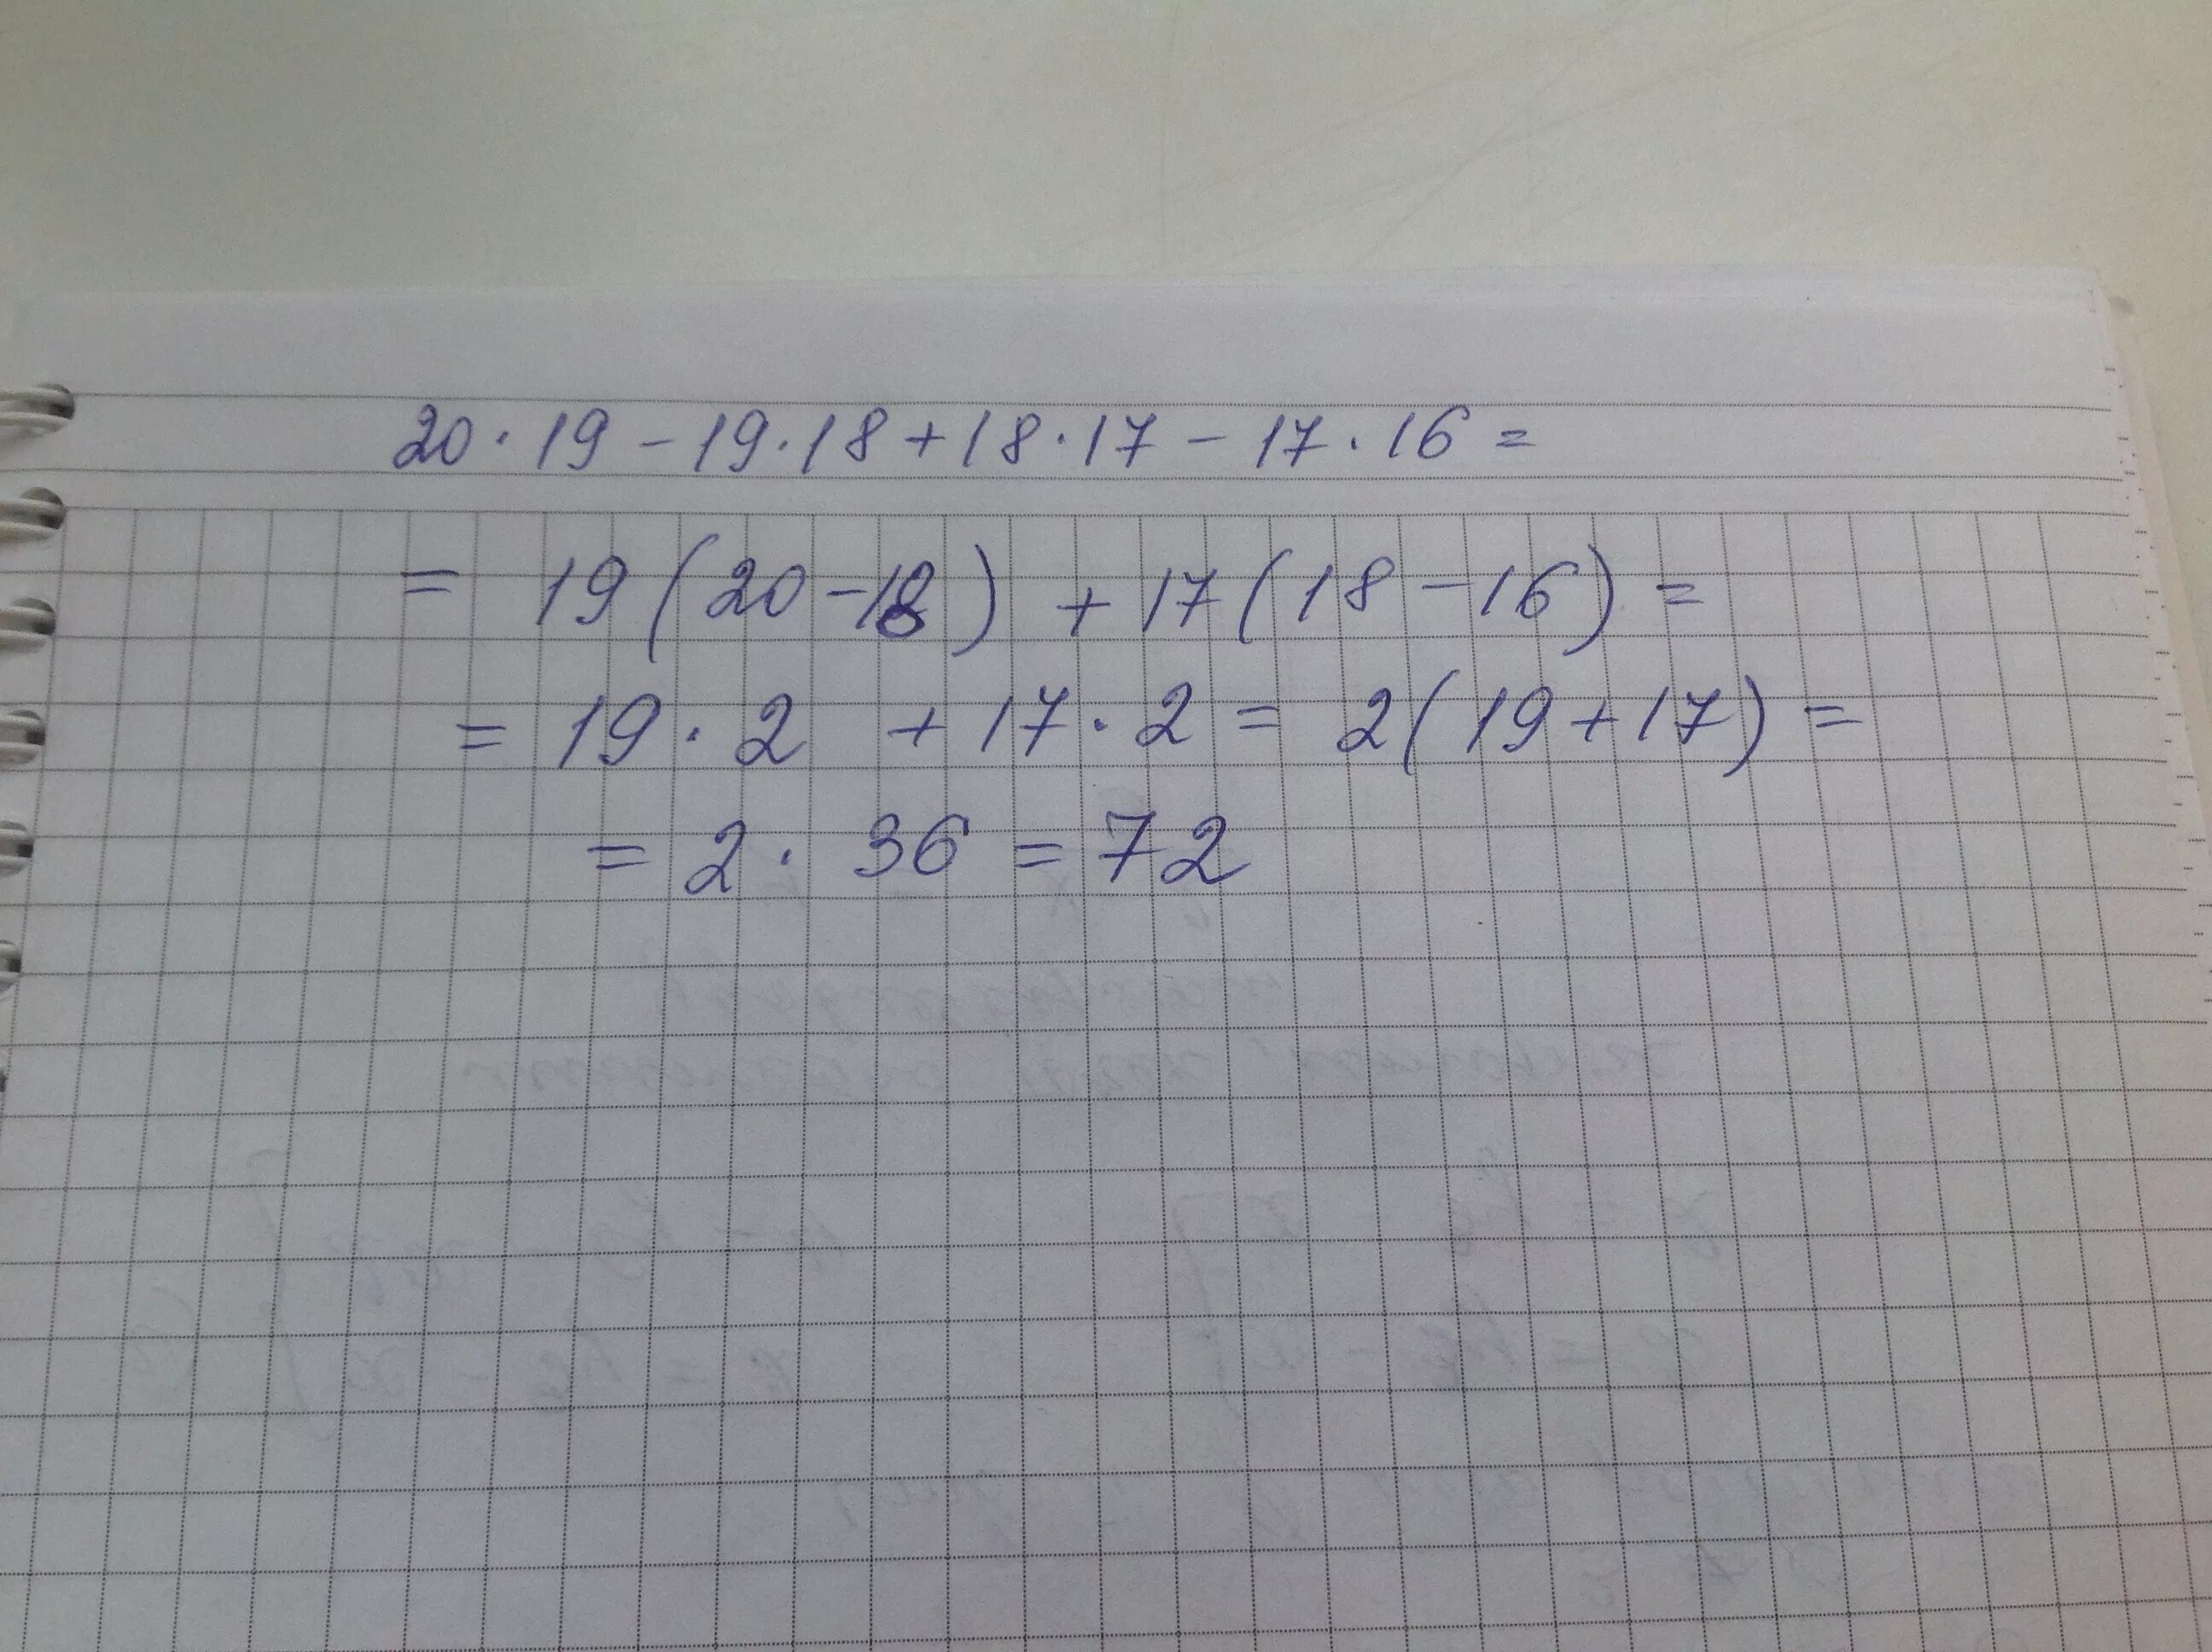 20 · 19 - 19 · 18 + 18 · 17 - 17 · 16 =
= 19 (20 - 18) + 17 (18 - 16) =
= 19 · 2 + 17 · 2 = 2 (19 + 17) =
= 2 · 36 = 72